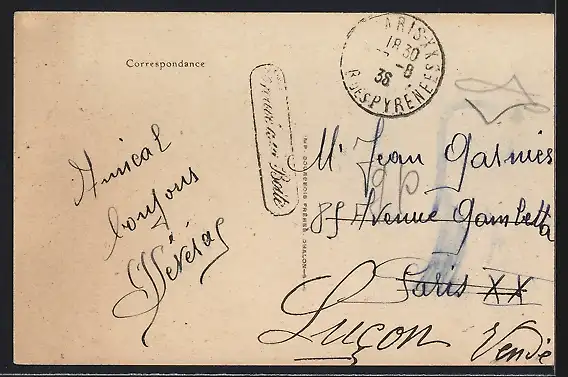 Correspondance
PARIS-XX
18 30
-8
36
R. DES PYRENEES
Trouvé à la Boîte
IMP. BOURGEOIS FRÈRES, CHALON-S
Amical
bonjour
Mr Jean Garnier
85 Avenue Gambetta
Paris XX
Luçon Vendé